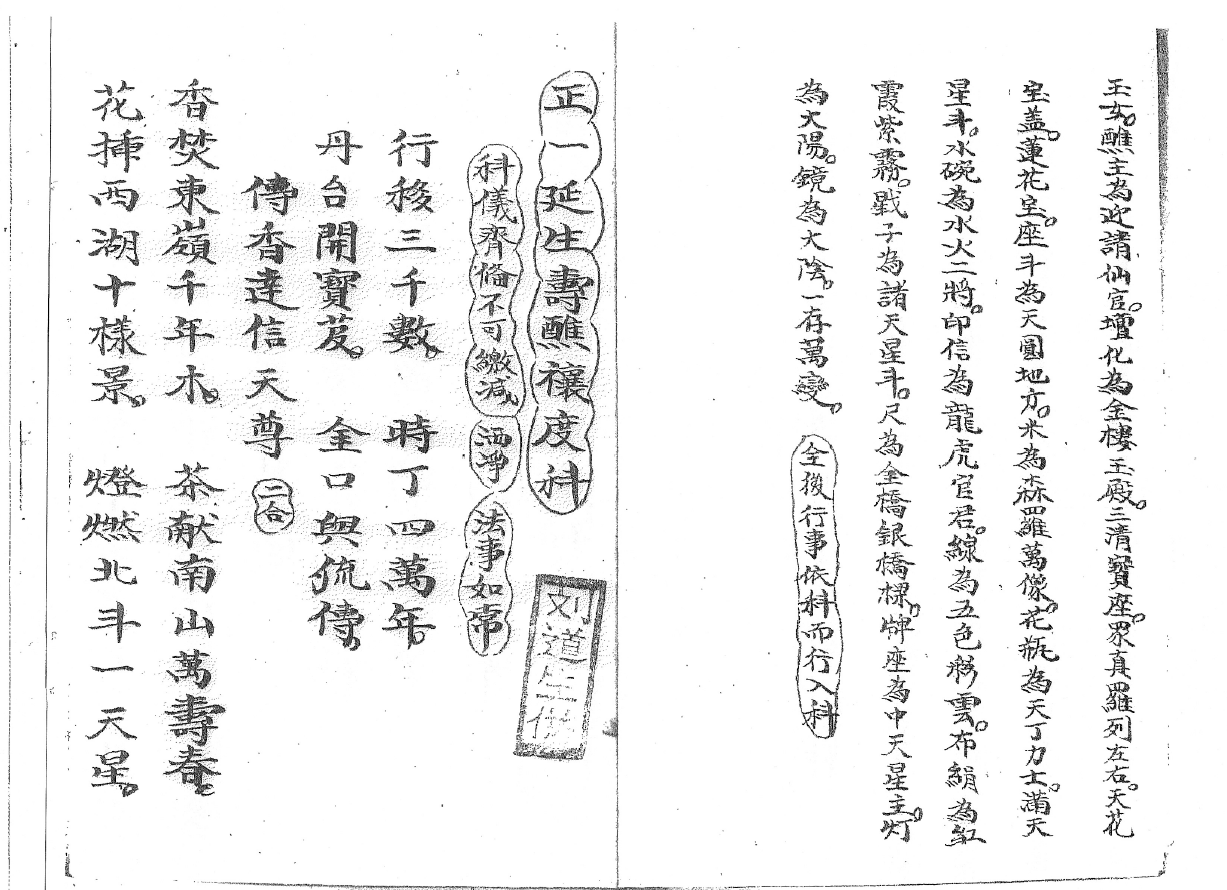 玉女。醮主為迎請仙官。壇化為金樓玉殿。三清寶座。眾真羅列左右。天花
宝盖。蓮花宝座。斗為天圓地方。米為森羅萬像。花瓶為天丁力士。滿天
星斗。水碗為水火二將。印信為龍虎官君。線為五色彩雲。布絹為紅
霞紫霧。戥子為諸天星斗。尺為金橋銀橋樑。牌座為中天星主。灯
為太陽。鏡為太陰。一存萬變。 全後行事依科而行入科
正一延生壽醮禳度科
科儀齊俻不可繳減。 洒凈 法事如常
刘道生俻
行移三千數。 時丁四萬年。
丹台開寶芨。 金口與流傳。
傳香達信天尊 二合
香焚東嶺千年木。 茶献南山萬壽春。
花插西湖十樣景。 燈燃北斗一天星。